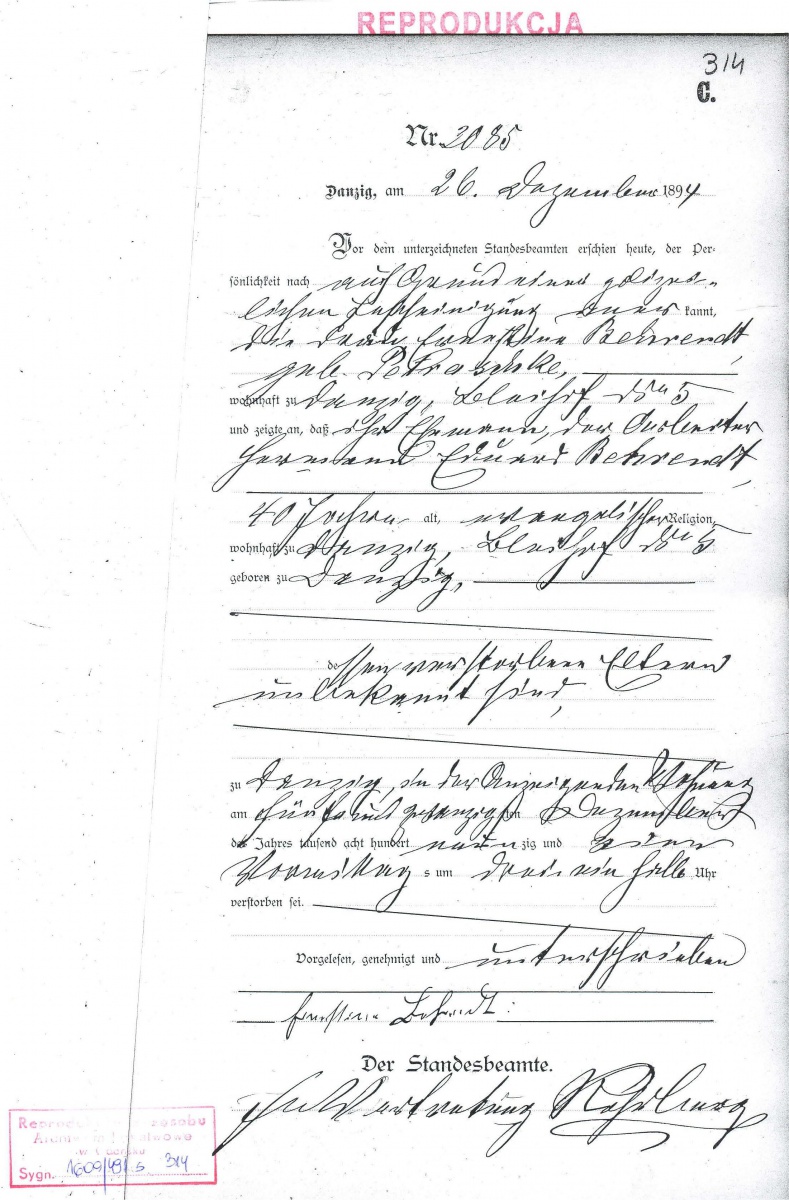 REPRODUKCJA
314
C.
Nr. 2085
Danzig, am 26. Dezember 1894
Vor dem unterzeichneten Standesbeamten erschien heute, der Per-
sönlichkeit nach auf Grund einer polizei-
lichen Bescheinigung aner kannt,
die Frau Ernestine Behrendt,
geb. Petraschke,
wohnhaft zu Danzig, Bleihof No 5
und zeigte an, daß ihr Ehemann, der Arbeiter
Hermann Eduard Behrendt,
40 Jahre alt, evangelischer Religion,
wohnhaft zu Danzig, Bleihof No 5
geboren zu Danzig,
dessen verstorbene Eltern
unbekannt sind,
zu Danzig, in der Anzeigenden Wohnung
am fünf und zwanzigsten Dezember
des Jahres tausend acht hundert neunzig und vier
Vormittags um drei ein halb Uhr
verstorben sei.
Vorgelesen, genehmigt und unterschrieben
Ernstine Behrendt.
Der Standesbeamte.
In Vertretung
Archiwum Państwowe
Sygn. 1609/491 s 314